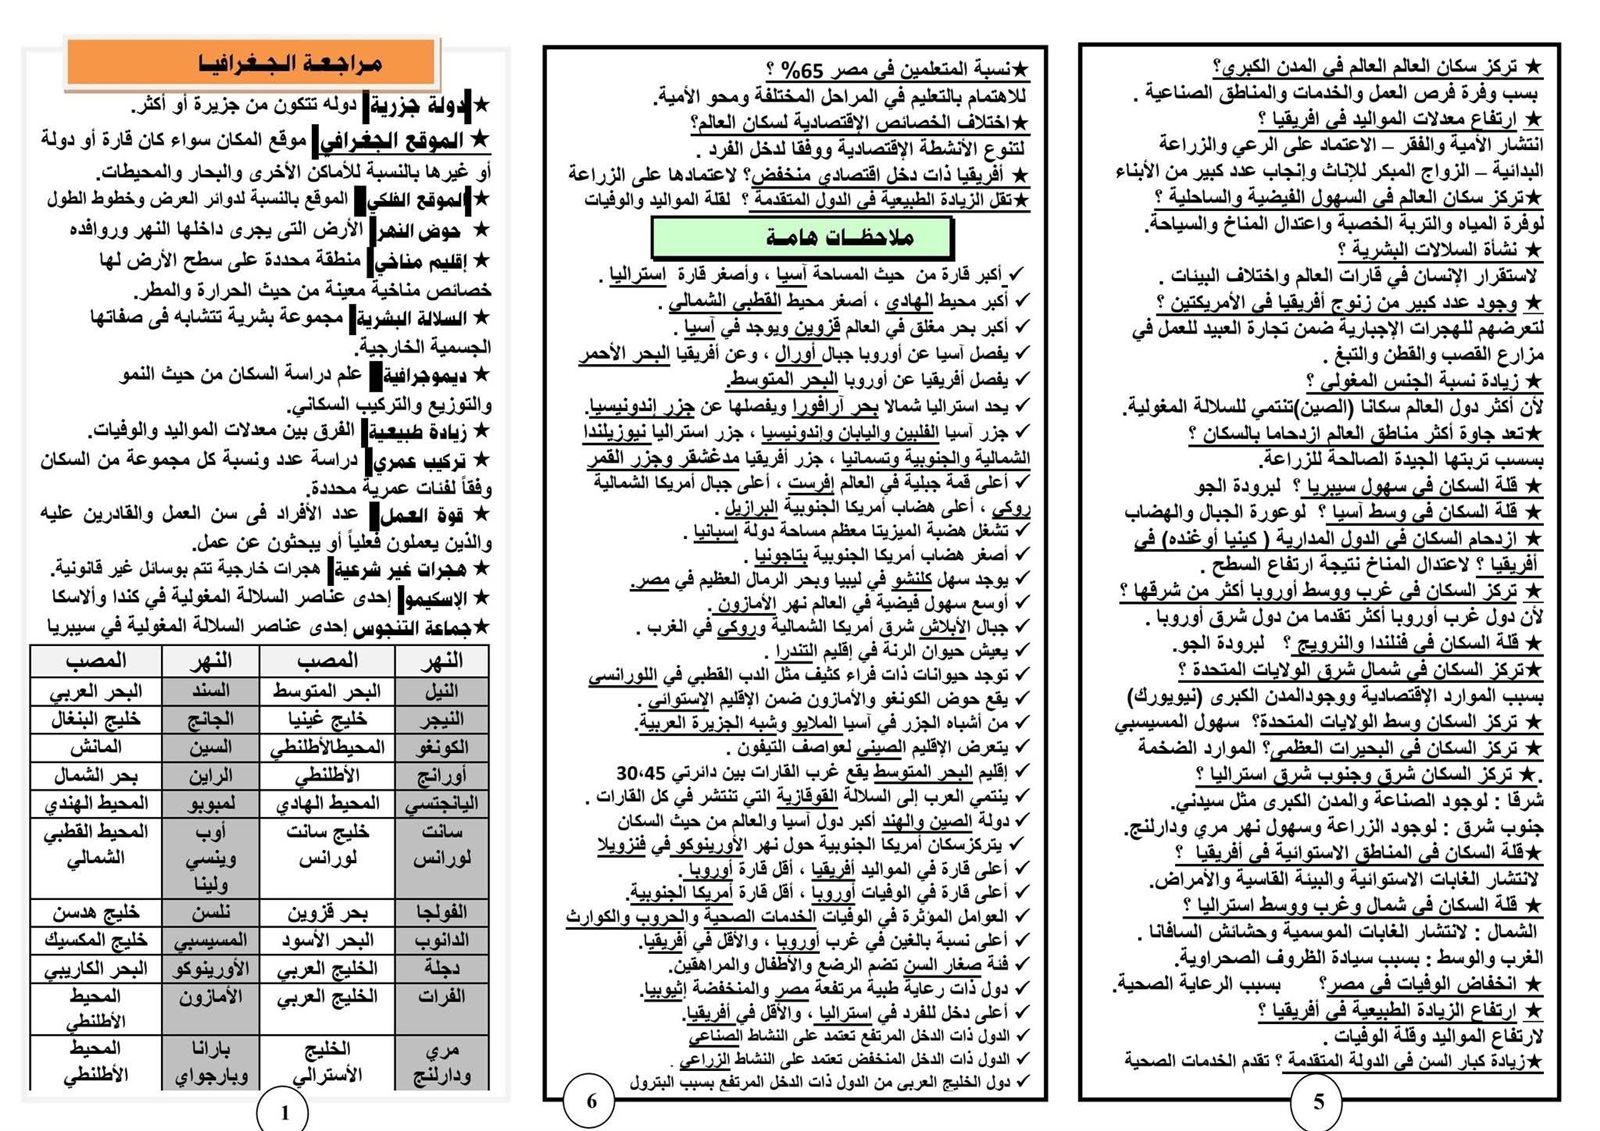 ★ تركز سكان العالم العالم في المدن الكبري؟
بسب وفرة فرص العمل والخدمات والمناطق الصناعية .
★ ارتفاع معدلات المواليد في افريقيا ؟
انتشار الأمية والفقر – الاعتماد على الرعي والزراعة
البدائية – الزواج المبكر للإناث وإنجاب عدد كبير من الأبناء
★تركز سكان العالم في السهول الفيضية والساحلية ؟
لوفرة المياه والتربة الخصبة واعتدال المناخ والسياحة.
★ نشأة السلالات البشرية ؟
لاستقرار الإنسان في قارات العالم واختلاف البيئات .
★ وجود عدد كبير من زنوج أفريقيا في الأمريكتين ؟
لتعرضهم للهجرات الإجبارية ضمن تجارة العبيد للعمل في
مزارع القصب والقطن والتبغ .
★ زيادة نسبة الجنس المغولي ؟
لأن أكثر دول العالم سكانا (الصين)تنتمي للسلالة المغولية.
★تعد جاوة أكثر مناطق العالم ازدحاما بالسكان ؟
بسسب تربتها الجيدة الصالحة للزراعة.
★ قلة السكان في سهول سيبريا ؟ لبرودة الجو
★ قلة السكان في وسط آسيا ؟ لوعورة الجبال والهضاب
★ ازدحام السكان في الدول المدارية ( كينيا أوغنده) في
أفريقيا ؟ لاعتدال المناخ نتيجة ارتفاع السطح .
★ تركز السكان في غرب ووسط أوروبا أكثر من شرقها ؟
لأن دول غرب أوروبا أكثر تقدما من دول شرق أوروبا .
★ قلة السكان في فنلندا والنرويج ؟ لبرودة الجو.
★تركز السكان في شمال شرق الولايات المتحدة ؟
بسبب الموارد الإقتصادية ووجودالمدن الكبرى (نيويورك)
★ تركز السكان وسط الولايات المتحدة؟ سهول المسيسبي
★ تركز السكان في البحيرات العظمي؟ الموارد الضخمة
.★ تركز السكان شرق وجنوب شرق استراليا ؟
شرقا : لوجود الصناعة والمدن الكبرى مثل سيدني.
جنوب شرق : لوجود الزراعة وسهول نهر مري ودارلنج.
★قلة السكان في المناطق الاستوائية في أفريقيا ؟
لانتشار الغابات الاستوائية والبيئة القاسية والأمراض.
★ قلة السكان في شمال وغرب ووسط استراليا ؟
الشمال : لانتشار الغابات الموسمية وحشائش السافانا .
الغرب والوسط : بسبب سيادة الظروف الصحراوية.
★ انخفاض الوفيات في مصر؟ بسبب الرعاية الصحية.
★ ارتفاع الزيادة الطبيعية في أفريقيا ؟
لارتفاع المواليد وقلة الوفيات .
★زيادة كبار السن في الدولة المتقدمة ؟ تقدم الخدمات الصحية
5
★نسبة المتعلمين في مصر 65% ؟
للاهتمام بالتعليم في المراحل المختلفة ومحو الأمية.
★اختلاف الخصائص الإقتصادية لسكان العالم؟
لتنوع الأنشطة الإقتصادية ووفقا لدخل الفرد .
★ أفريقيا ذات دخل اقتصادي منخفض؟ لاعتمادها على الزراعة
★تقل الزيادة الطبيعية في الدول المتقدمة ؟ لقلة المواليد والوفيات
ملاحظات هامة
✓ أكبر قارة من حيث المساحة آسيا ، وأصغر قارة استراليا .
✓ أكبر محيط الهادي ، أصغر محيط القطبي الشمالي .
✓ أكبر بحر مغلق في العالم قزوين ويوجد في آسيا .
✓ يفصل آسيا عن أوروبا جبال أورال ، وعن أفريقيا البحر الأحمر
✓ يفصل أفريقيا عن أوروبا البحر المتوسط.
✓ يحد استراليا شمالا بحر آرافورا ويفصلها عن جزر إندونيسيا.
✓ جزر آسيا الفلبين واليابان وإندونيسيا ، جزر استراليا نيوزيلندا
الشمالية والجنوبية وتسمانيا ، جزر أفريقيا مدغشقر وجزر القمر
✓ أعلى قمة جبلية في العالم إفرست ، أعلى جبال أمريكا الشمالية
روكي ، أعلى هضاب أمريكا الجنوبية البرازيل .
✓ تشغل هضبة الميزيتا معظم مساحة دولة إسبانيا .
✓ أصغر هضاب أمريكا الجنوبية بتاجونيا .
✓ يوجد سهل كلنشو في ليبيا وبحر الرمال العظيم في مصر.
✓ أوسع سهول فيضية في العالم نهر الأمازون .
✓ جبال الأبلاش شرق أمريكا الشمالية وروكي في الغرب .
✓ يعيش حيوان الرنة في إقليم التندرا .
✓ توجد حيوانات ذات فراء كثيف مثل الدب القطبي في اللورانسي
✓ يقع حوض الكونغو والأمازون ضمن الإقليم الإستوائي .
✓ من أشباه الجزر في آسيا الملايو وشبه الجزيرة العربية.
✓ يتعرض الإقليم الصيني لعواصف التيفون .
✓ إقليم البحر المتوسط يقع غرب القارات بين دائرتي 30،45
✓ ينتمي العرب إلى السلالة القوقازية التي تنتشر في كل القارات .
✓ دولة الصين والهند أكبر دول آسيا والعالم من حيث السكان
✓ يتركزسكان أمريكا الجنوبية حول نهر الأورينوكو في فنزويلا
✓ أعلى قارة في المواليد أفريقيا ، أقل قارة أوروبا .
✓ أعلى قارة في الوفيات أوروبا ، أقل قارة أمريكا الجنوبية.
✓ العوامل المؤثرة في الوفيات الخدمات الصحية والحروب والكوارث
✓ أعلى نسبة بالغين في غرب أوروبا ، والأقل في أفريقيا.
✓ فئة صغار السن تضم الرضع والأطفال والمراهقين.
✓ دول ذات رعاية طبية مرتفعة مصر والمنخفضة إثيوبيا.
✓ أعلى دخل للفرد في استراليا ، والأقل في أفريقيا.
✓ الدول ذات الدخل المرتفع تعتمد على النشاط الصناعي
✓ الدول ذات الدخل المنخفض تعتمد على النشاط الزراعي .
✓ دول الخليج العربى من الدول ذات الدخل المرتفع بسبب البترول
6
مراجعة الجغرافيا
★ دولة جزرية دوله تتكون من جزيرة أو أكثر.
★ الموقع الجغرافي موقع المكان سواء كان قارة أو دولة
أو غيرها بالنسبة للأماكن الأخرى والبحار والمحيطات.
★ الموقع الفلكي الموقع بالنسبة لدوائر العرض وخطوط الطول
★ حوض النهر الأرض التى يجرى داخلها النهر وروافده
★ إقليم مناخي منطقة محددة على سطح الأرض لها
خصائص مناخية معينة من حيث الحرارة والمطر.
★ السلالة البشرية مجموعة بشرية تتشابه فى صفاتها
الجسمية الخارجية.
★ ديموجرافية علم دراسة السكان من حيث النمو
والتوزيع والتركيب السكاني.
★ زيادة طبيعية الفرق بين معدلات المواليد والوفيات.
★ تركيب عمري دراسة عدد ونسبة كل مجموعة من السكان
وفقاً لفئات عمرية محددة.
★ قوة العمل عدد الأفراد فى سن العمل والقادرين عليه
والذين يعملون فعلياً أو يبحثون عن عمل.
★ هجرات غير شرعية هجرات خارجية تتم بوسائل غير قانونية.
★ الإسكيمو إحدى عناصر السلالة المغولية في كندا وألاسكا
★جماعة التنجوس إحدى عناصر السلالة المغولية في سيبريا
النهر المصب النهر المصب
النيل البحر المتوسط السند البحر العربي
النيجر خليج غينيا الجانج خليج البنغال
الكونغو المحيطالأطلنطي السين المانش
أورانج الأطلنطي الراين بحر الشمال
اليانجتسي المحيط الهادي لمبوبو المحيط الهندي
سانت خليج سانت أوب المحيط القطبي
لورانس لورانس وينسي الشمالي
ولينا
الفولجا بحر قزوين نلسن خليج هدسن
الدانوب البحر الأسود المسيسبي خليج المكسيك
دجلة الخليج العربي الأورينوكو البحر الكاريبي
الفرات الخليج العربي الأمازون المحيط
الأطلنطي
مري الخليج بارانا المحيط
ودارلنج الأسترالي وبارجواي الأطلنطي
1